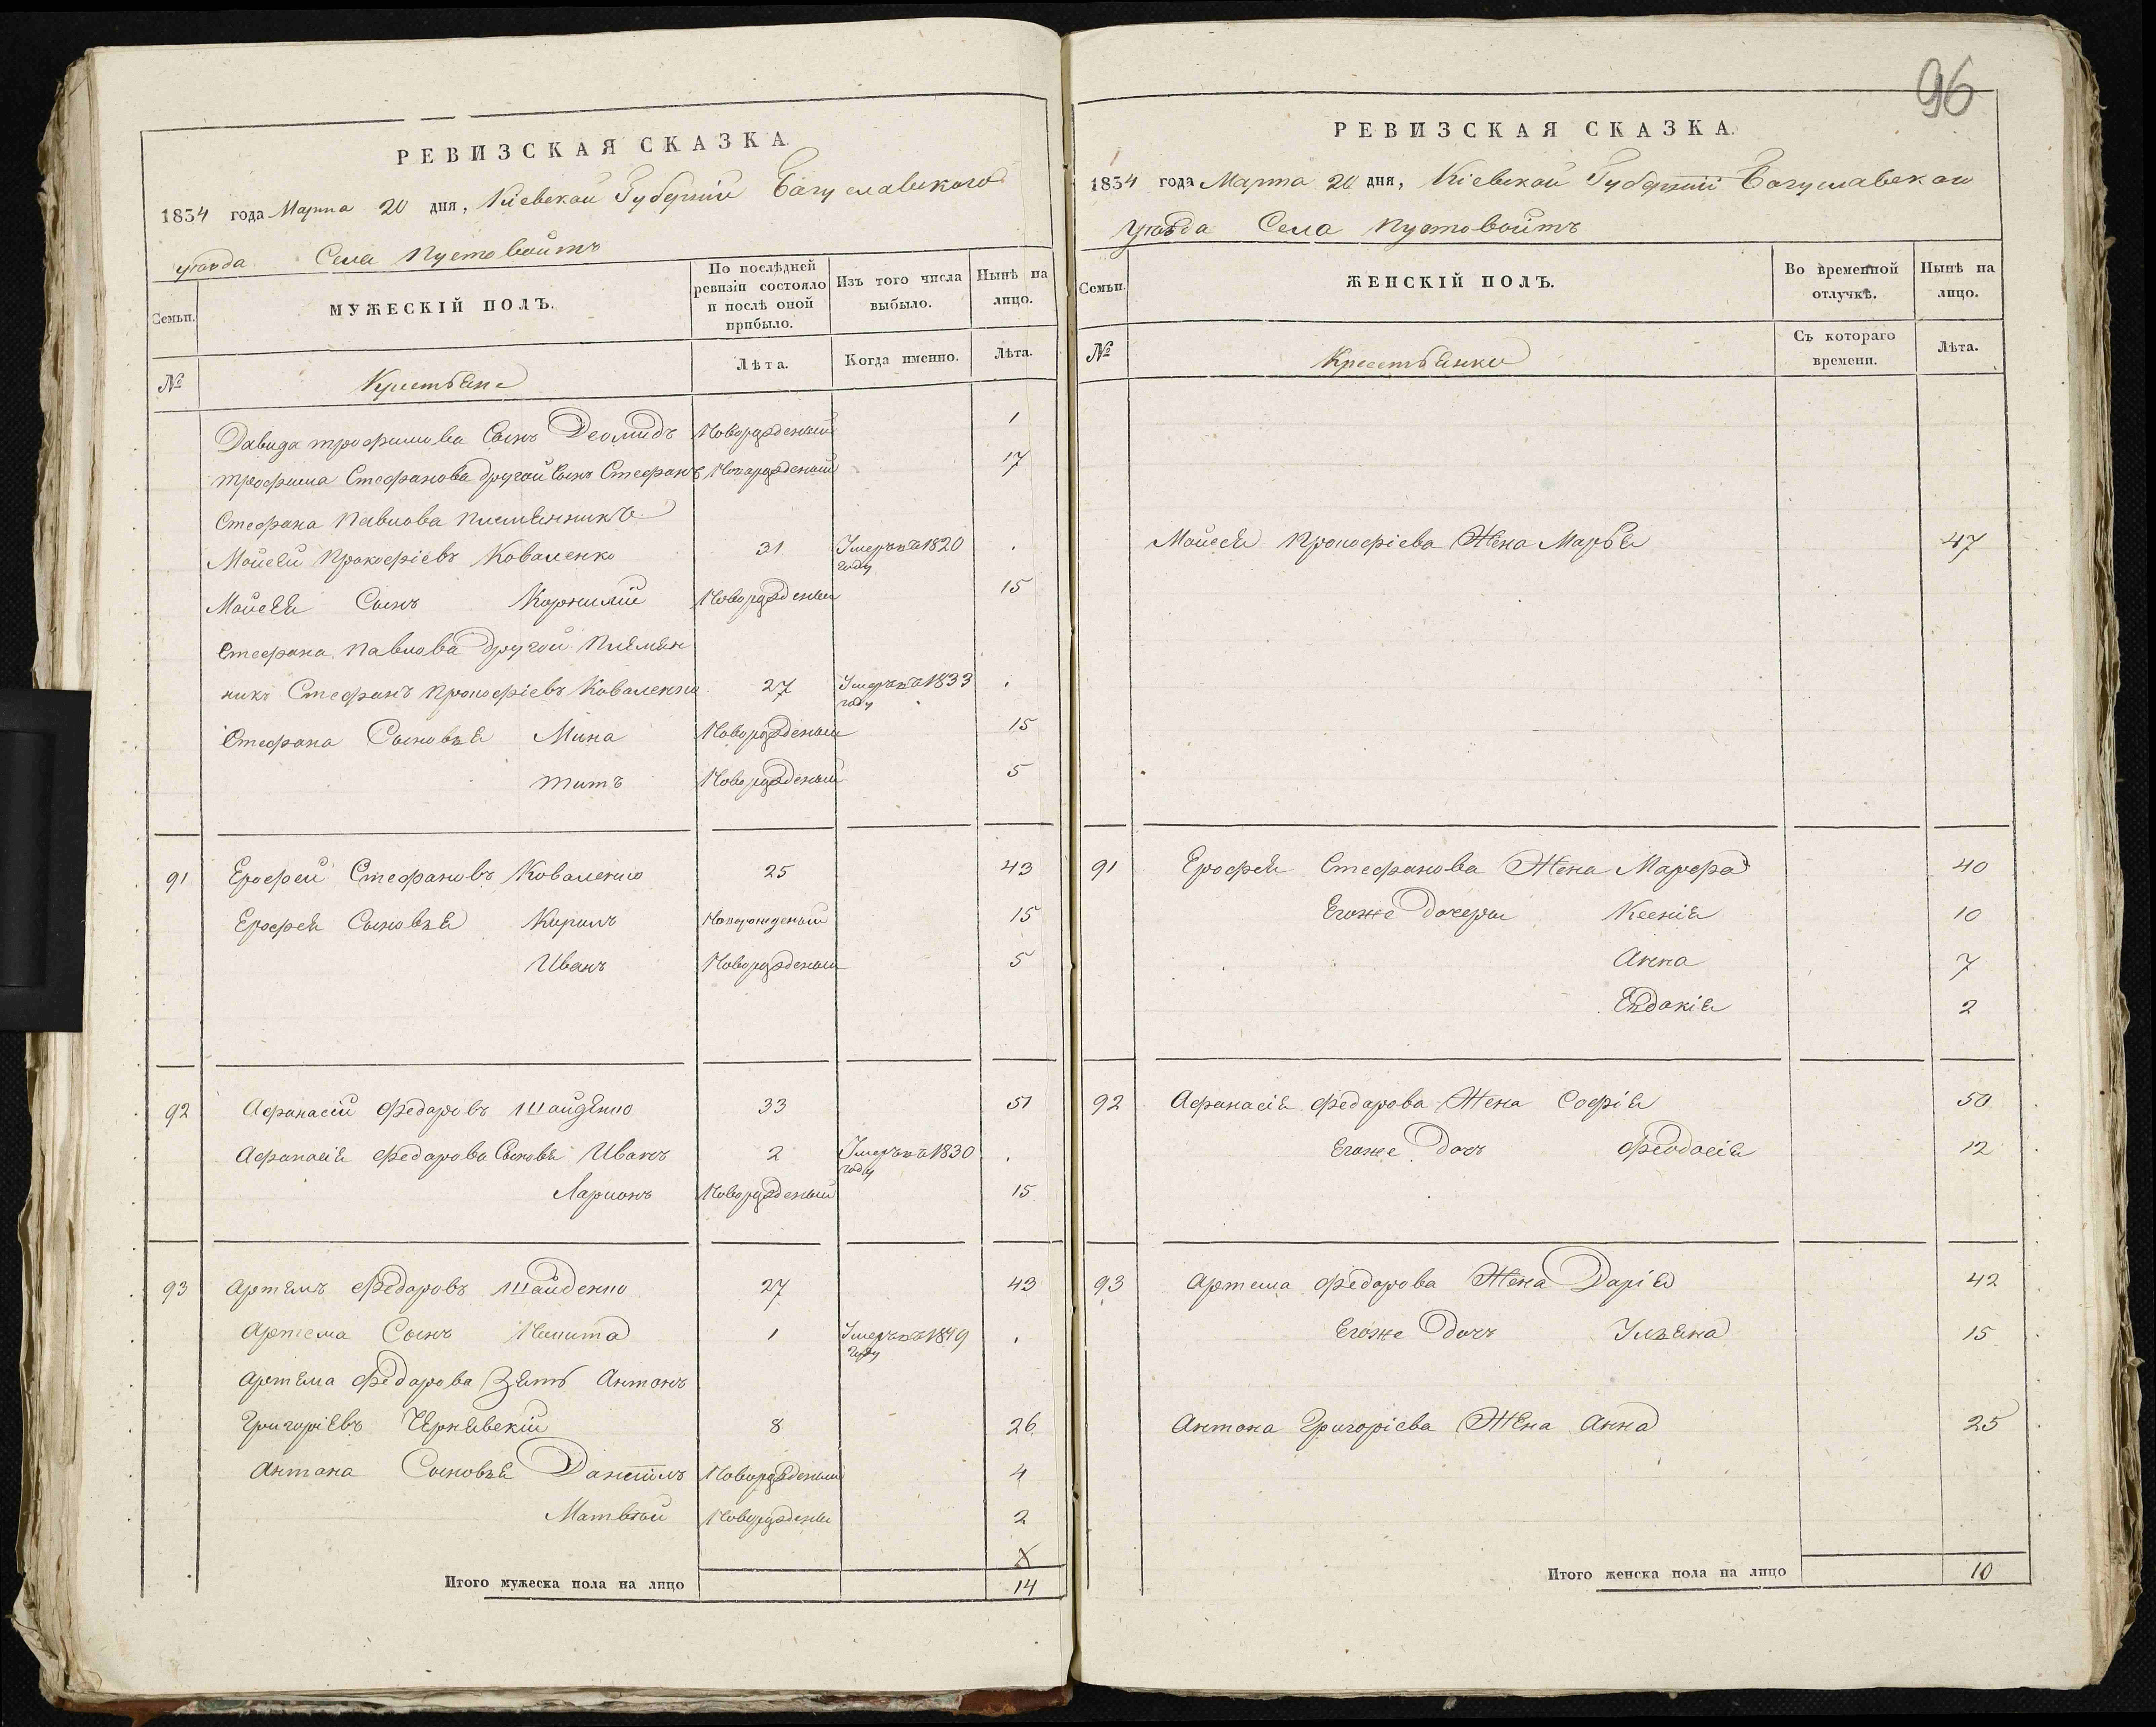 РЕВИЗСКАЯ СКАЗКА.
1834 года Марта 20 дня, Кіевской Губерніи Богуславского
уѣзда Села Пустовойтъ
Семьи.
МУЖЕСКІЙ ПОЛЪ.
По послѣдней ревизіи состояло и послѣ оной прибыло.
Изъ того числа выбыло.
Нынѣ на лицо.
№
Крестьяне
Лѣта.
Когда именно.
Лѣта.
Давида трофимова Сынъ Деомидъ Новорожденный 1
трофима Стефанова другой Сынъ Стефанъ Новорожденый 17
Стефана Павлова племянникъ
Мойсей Прокофіевъ Коваленко 31 Умеръ въ 1820 году .
Мойсея Сынъ Корнилій Новорожденый 15
Стефана Павлова другой Племян
никъ Стефанъ Прокофіевъ Коваленко 27 Умеръ въ 1833 году .
Стефана Сыновья Мина Новорожденый 15
титъ Новорожденый 5
91 Ерофей Стефановъ Коваленко 25 43
Ерофея Сыновья Кирилъ Новорожденый 15
Иванъ Новорожденый 5
92 Афанасій Федоровъ Шайденко 33 51
Афанасія Федорова Сыновья Иванъ 2 Умеръ въ 1830 году .
Ларионъ Новорожденый 15
93 Артемъ Федоровъ Шайденко 27 43
Артема Сынъ Никита 1 Умеръ въ 1819 году .
Артема Федорова Зять Антонъ
Григоріевъ Чернявскій 8 26
Антона Сыновья Даніилъ Новорожденый 4
Матвѣй Новорожденый 2
Итого мужеска пола на лицо 14
96
РЕВИЗСКАЯ СКАЗКА.
1834 года Марта 20 дня, Кіевской Губерніи Богуславского
уѣзда Села Пустовойтъ
Семьи.
ЖЕНСКІЙ ПОЛЪ.
Во временной отлучкѣ.
Нынѣ на лицо.
№
Крестьянки
Съ котораго времени.
Лѣта.
Мойсея Прокофіева Жена Марья 47
91 Ерофея Стефанова Жена Марфа 40
Егоже Дочери Ксенія 10
Анна 7
Евдокія 2
92 Афанасія Федорова Жена Софія 50
Егоже Дочь Феодосія 12
93 Артема Федорова Жена Дарія 42
Егоже Дочь Ульяна 15
Антона Григоріева Жена Анна 25
Итого женска пола на лицо 10